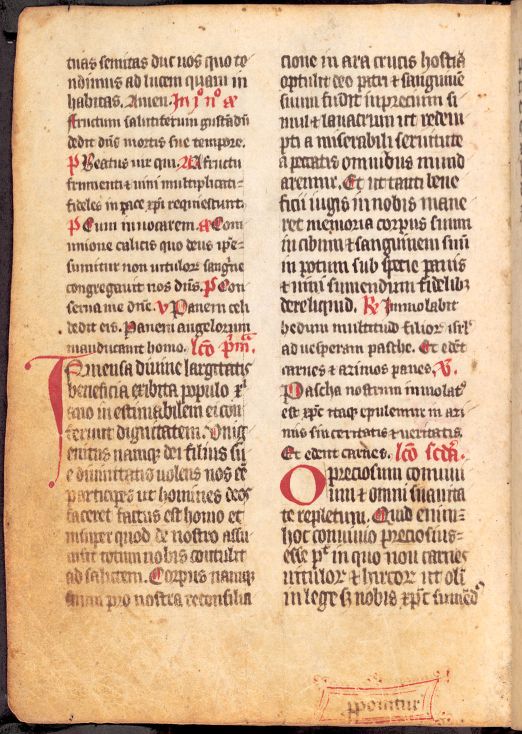 tuas semitas duc nos quo te
ndimus ad lucem quam in
habitas. Amen. In j° n° a
fructum salutiferum gustādū
dedit dn̄s mortis sue tempore.
p Beatus uir qui. A A fructu
frumenti ⁊ uini multiplicati-
fideles in pace xp̄i requiescunt.
p Cum inuocarem a Com
munione calicis quo deus ip̄e-
sumitur non uitulor sangīne
congregauit nos dn̄s. p Con
serua me dn̄e. v Panem celi
dedit eis. Panem angelorum
manducauit homo. lc̄o p̄mā.
Inmensa diuine largitatis
beneficia exibita populo xp̄i
ano in estimabilem ei con
ferunt dignitatem. Vnig
enitus namq; dei filius su
e diuinitatis uolens nos cē
participes ut homines deos
faceret factus est homo et
insuper quod de nostro assu
msit totum nobis contulit
ad salutem. Corpus namq;
suum pro nostra reconsilia
cione in ara crucis hostiā
optulit deo patri ⁊ sanguinē
suum fudit in precium si
mul ⁊ lauacrum ut redem
pti a miserabili seruitute
a peccatis omnibus mund
aremur. Et ut tanti bene
ficii iugis in nobis mane
ret memoria corpus suum
in cibum ⁊ sanguinem suū
in potum sub specie panis
⁊ uini sumendum fidelib;
dereliquid. R Immolabit
hedum multitudo filior isrl'
ad uesperam pasche. Et edēt
carnes ⁊ azimos panes. V.
Pascha nostrum immolat'
est xp̄c itaq; epulemur in azi
mis sinceritatis ⁊ ueritatis.
Et edent carnes. lc̄o scdā.
O preciosum conuiui
uum ⁊ omni suauita
te repletum. Quid enim-
hoc conuiuio preciosius-
esse p̄t in quo non carnes
uitulor ⁊ hircor ut oli
in lege s; nobis xp̄c sumēd'
pponitur